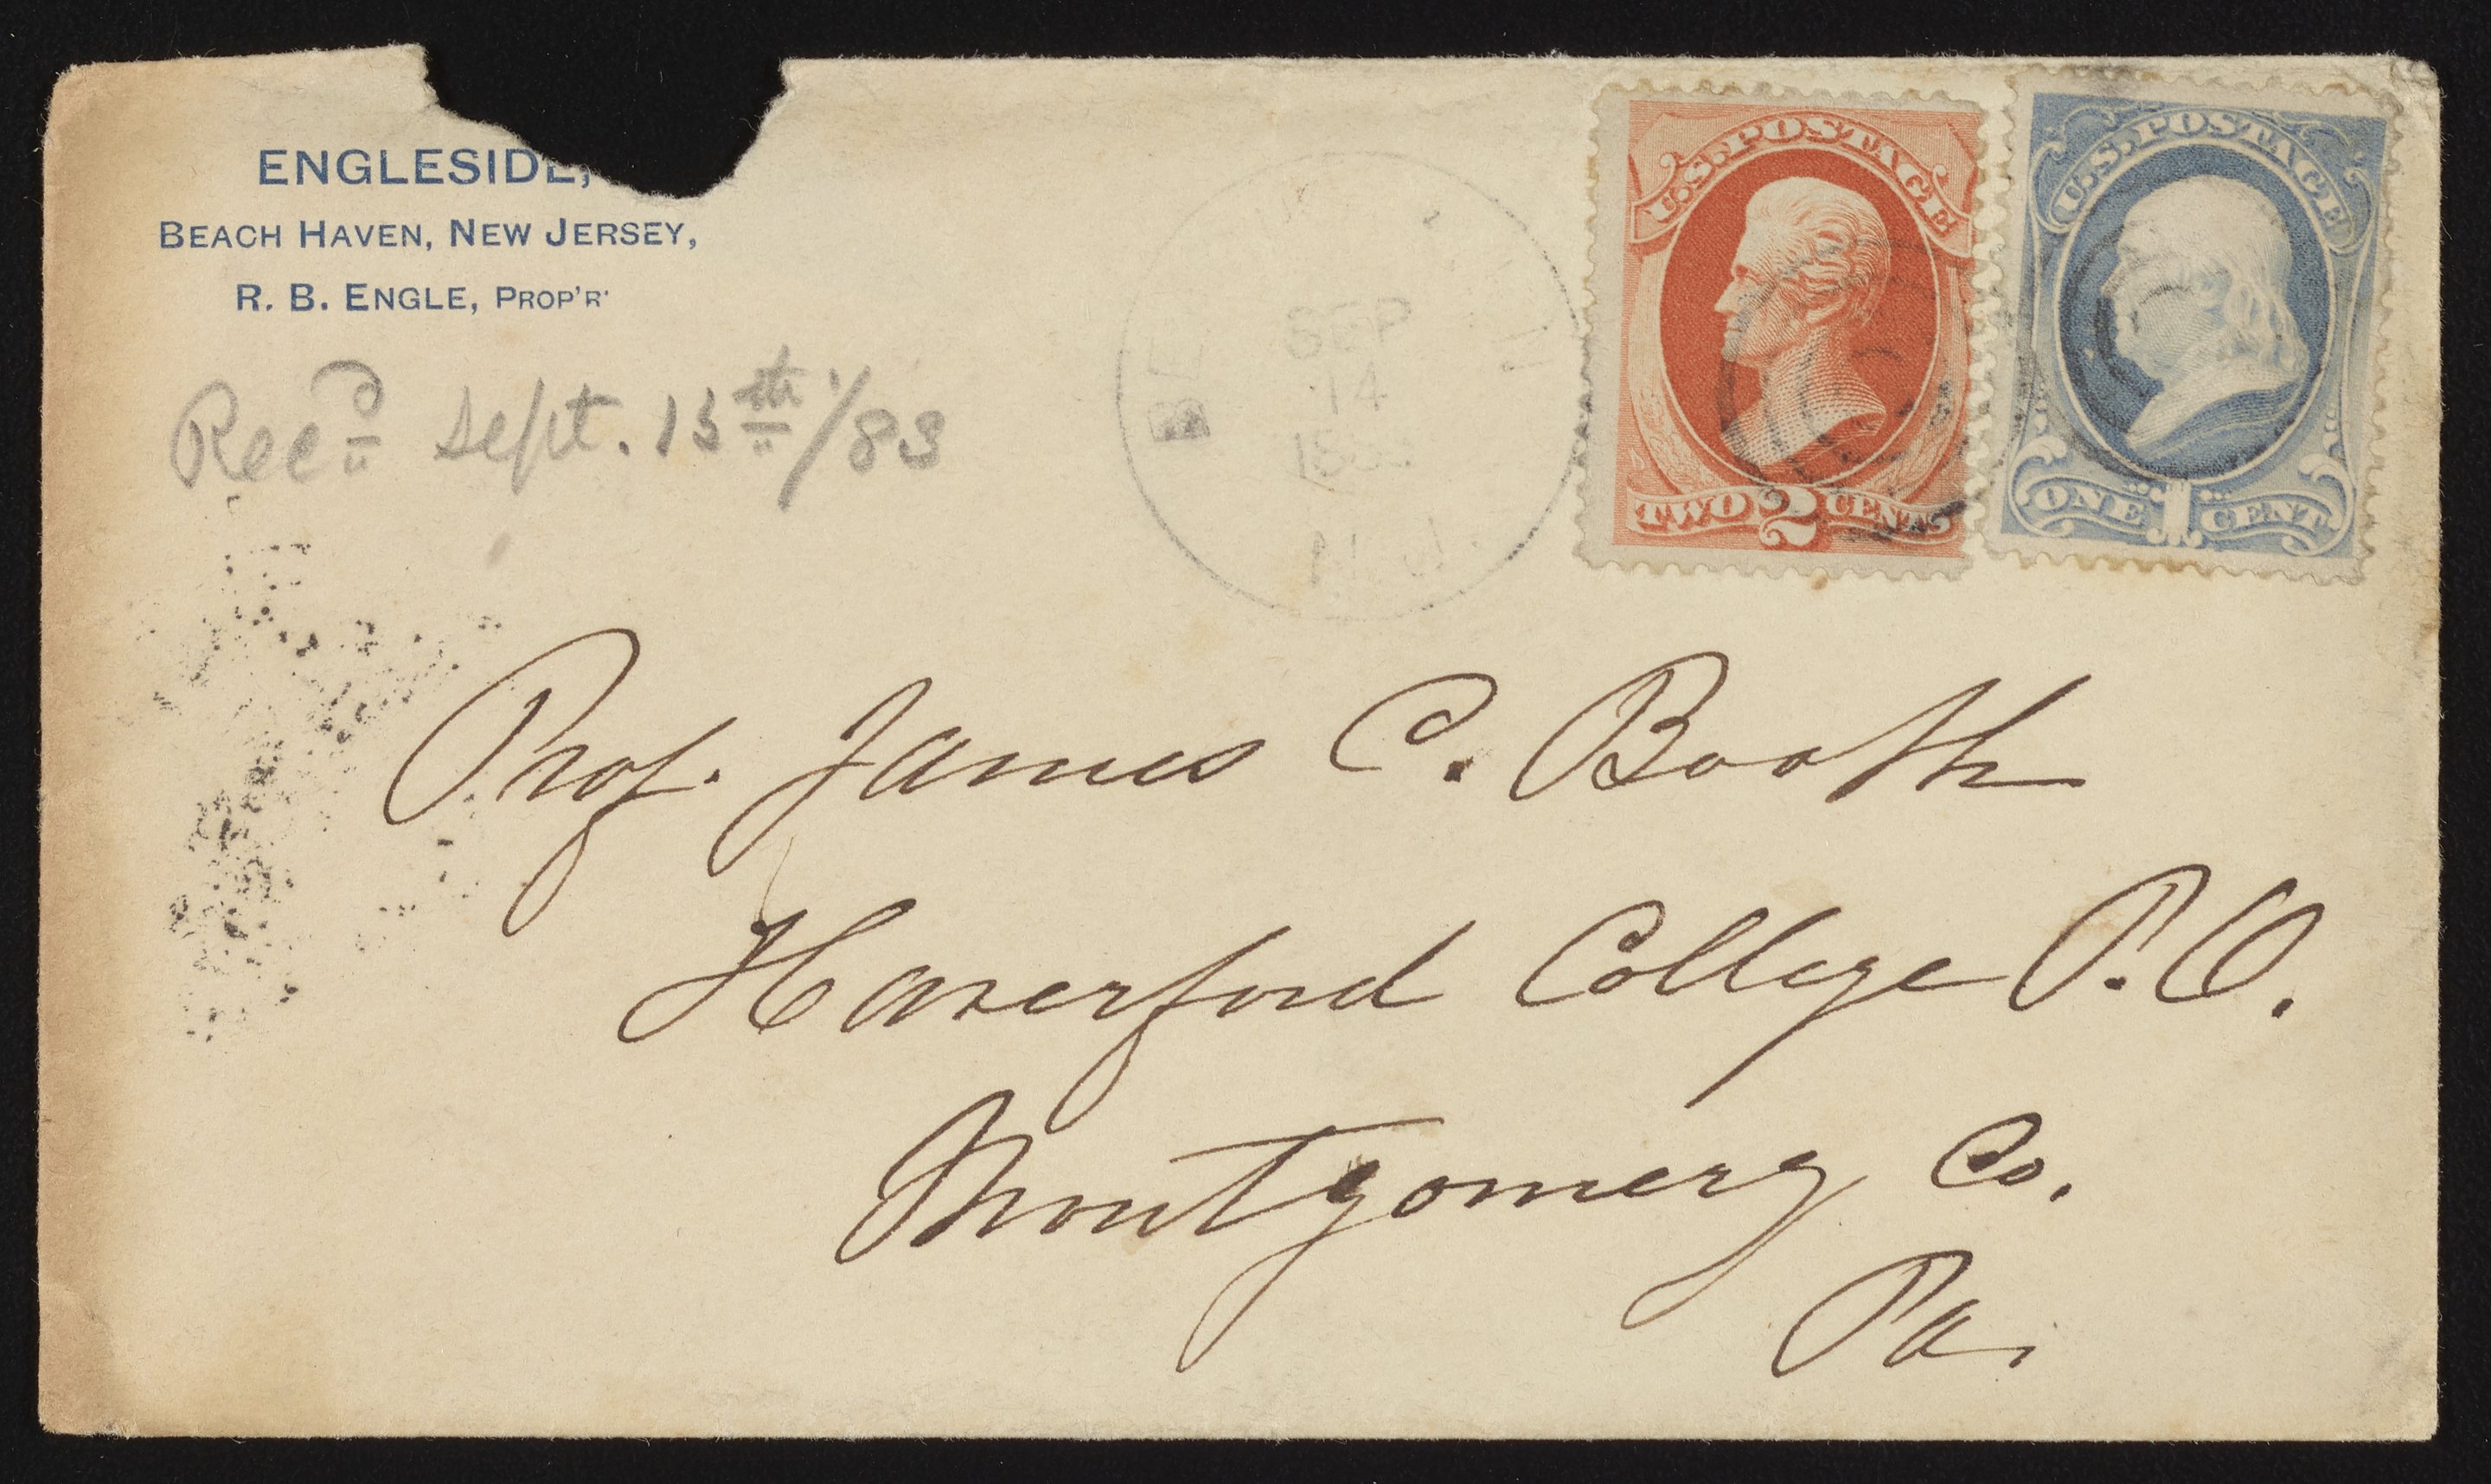 ENGLESIDE,
BEACH HAVEN, NEW JERSEY,
R. B. ENGLE, PROP'R.
Rec'd Sept. 15th/83
SEP
14
N.J.
U.S. POSTAGE
TWO 2 CENTS
U.S. POSTAGE
ONE 1 CENT
Prof. James C. Booth
Haverford College P.O.
Montgomery Co.
Pa.